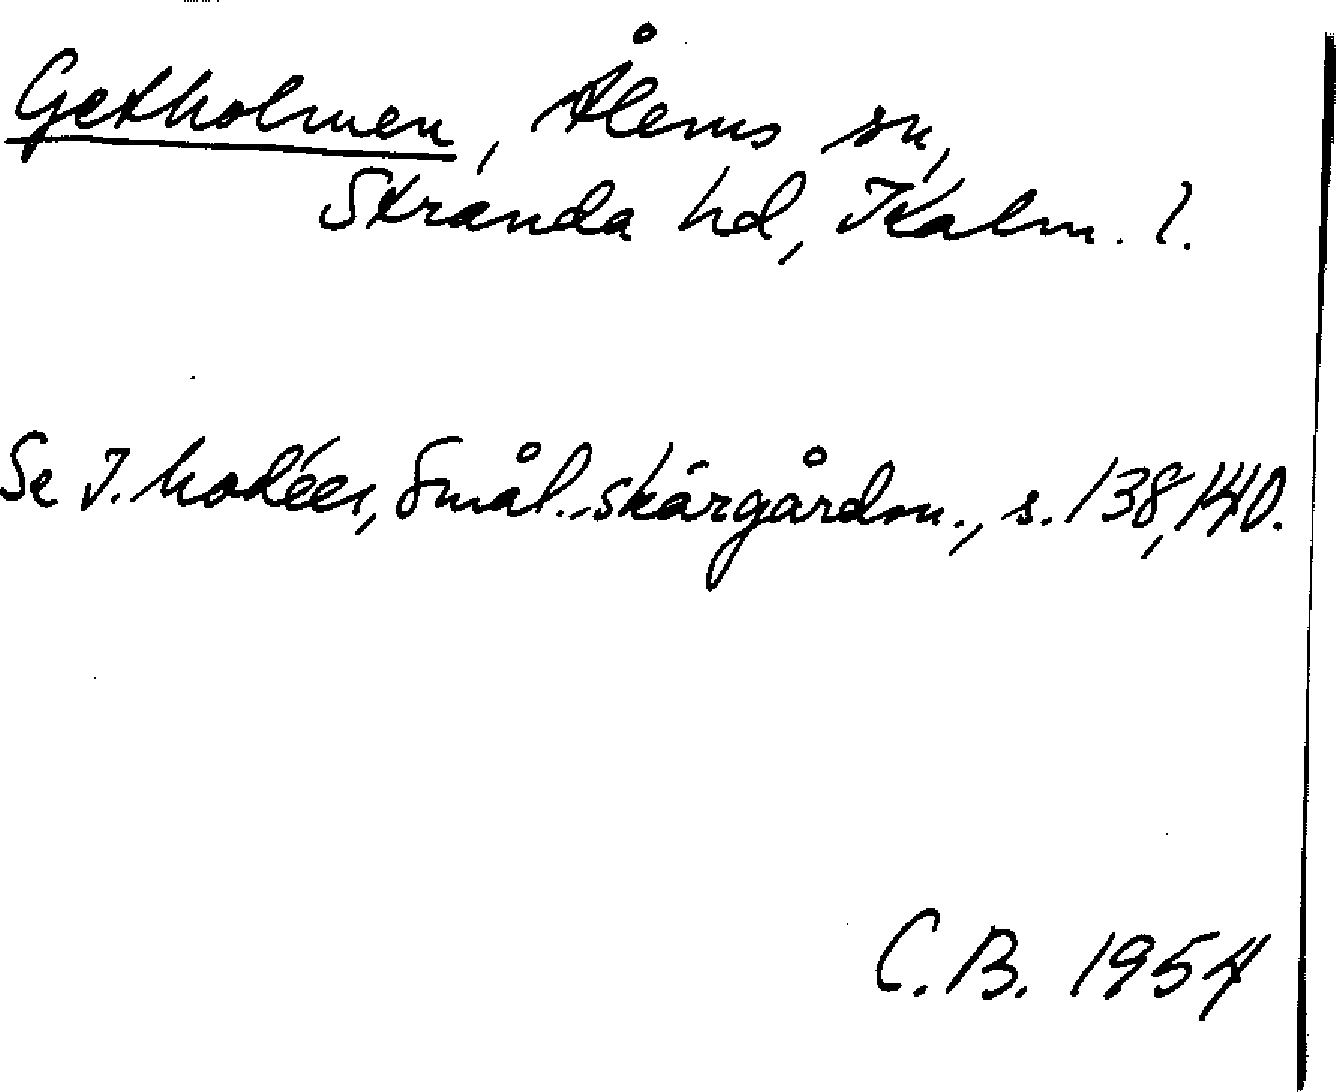 Getholmen, Ålems sn,
Stranda hd, Kalm. l.
Se I. Modéer, Smål. skärgårdsn., s. 138, 140.
C.B. 1954